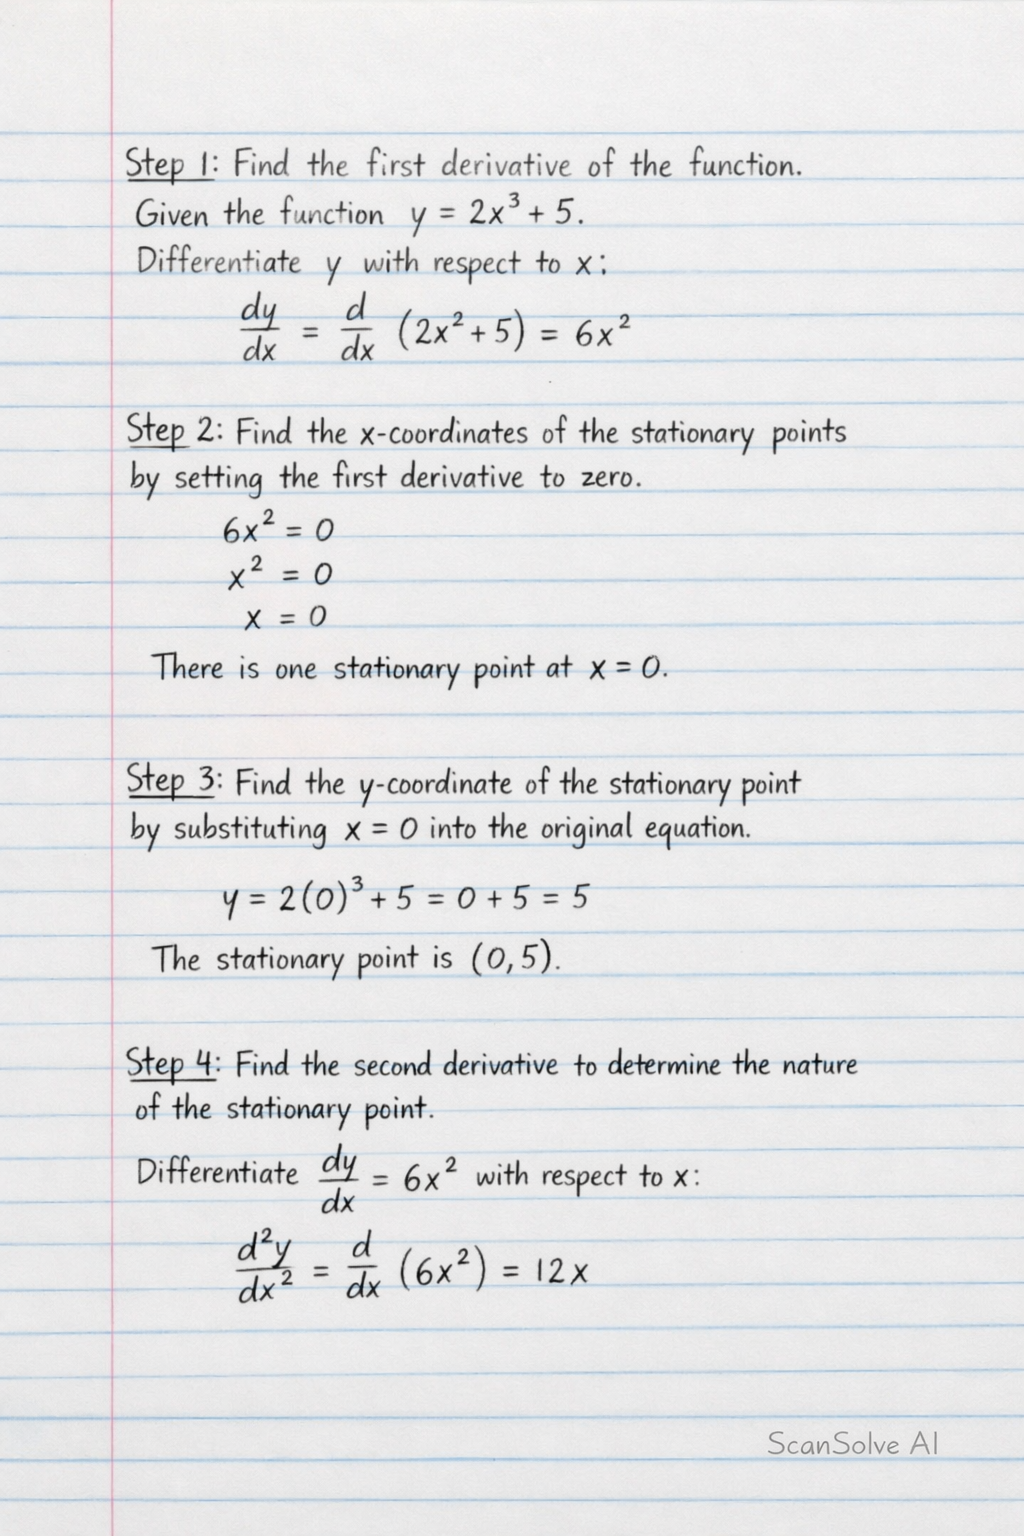 Step 1: Find the first derivative of the function.
Given the function y = 2x³ + 5.
Differentiate y with respect to x:
dy/dx = d/dx (2x² + 5) = 6x²
Step 2: Find the x-coordinates of the stationary points
by setting the first derivative to zero.
6x² = 0
x² = 0
x = 0
There is one stationary point at x = 0.
Step 3: Find the y-coordinate of the stationary point
by substituting x = 0 into the original equation.
y = 2(0)³ + 5 = 0 + 5 = 5
The stationary point is (0, 5).
Step 4: Find the second derivative to determine the nature
of the stationary point.
Differentiate dy/dx = 6x² with respect to x:
d²y/dx² = d/dx (6x²) = 12x
ScanSolve AI